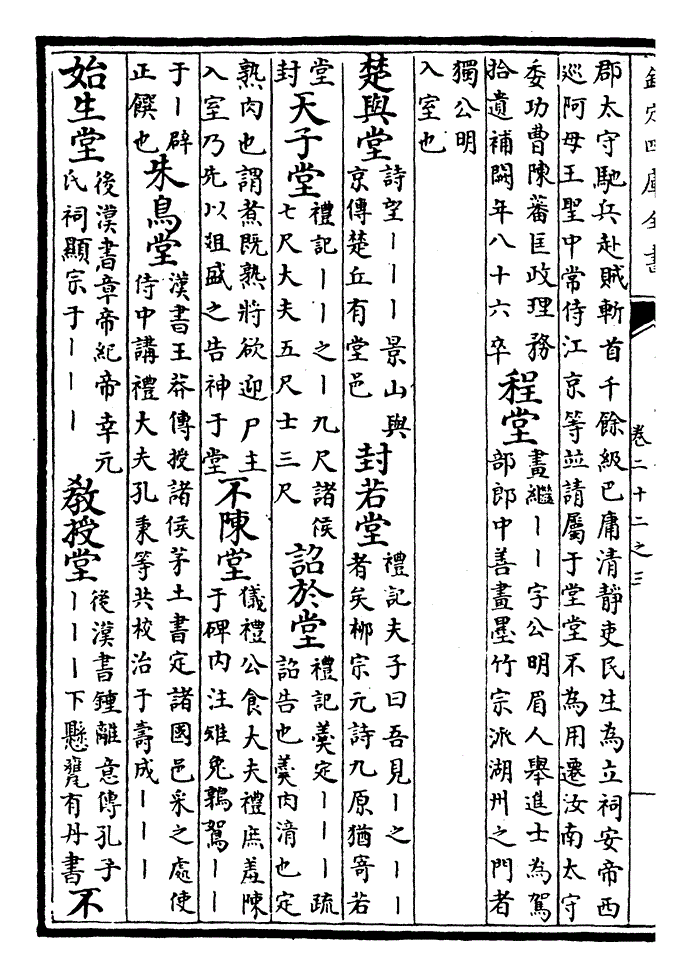 欽定四庫全書
卷二十二之三
郡太守馳兵赴賊斬首千餘級巴庸清靜吏民生為立祠安帝西
巡阿母王聖中常侍江京等並請屬于堂堂不為用遷汝南太守
委功曹陳蕃匡政理務
拾遺補闕年八十六卒
程堂
畫繼丨丨字公明眉人舉進士為駕
部郎中善畫墨竹宗派湖州之門者
獨公明
入室也
楚與堂
詩望丨丨丨景山與
京傳楚丘有堂邑
封若堂
禮記夫子曰吾見丨之丨丨
者矣柳宗元詩九原猶寄若
堂
封
天子堂
禮記丨丨之丨九尺諸侯
七尺大夫五尺士三尺
詔於堂
禮記羹定丨丨丨疏
詔告也羹肉湆也定
熟肉也謂煮既熟將欲迎尸主
入室乃先以俎盛之告神于堂
不陳堂
儀禮公食大夫禮庶羞陳
于碑內注雉兔鶉鴽丨丨
于丨辟
正饌也
朱鳥堂
漢書王莽傳授諸侯茅土書定諸國邑采之處使
侍中講禮大夫孔秉等共校治于壽成丨丨丨
始生堂
後漢書章帝紀帝幸元
氏祠顯宗于丨丨丨
教授堂
後漢書鍾離意傳孔子
丨丨丨下懸甕有丹書
不